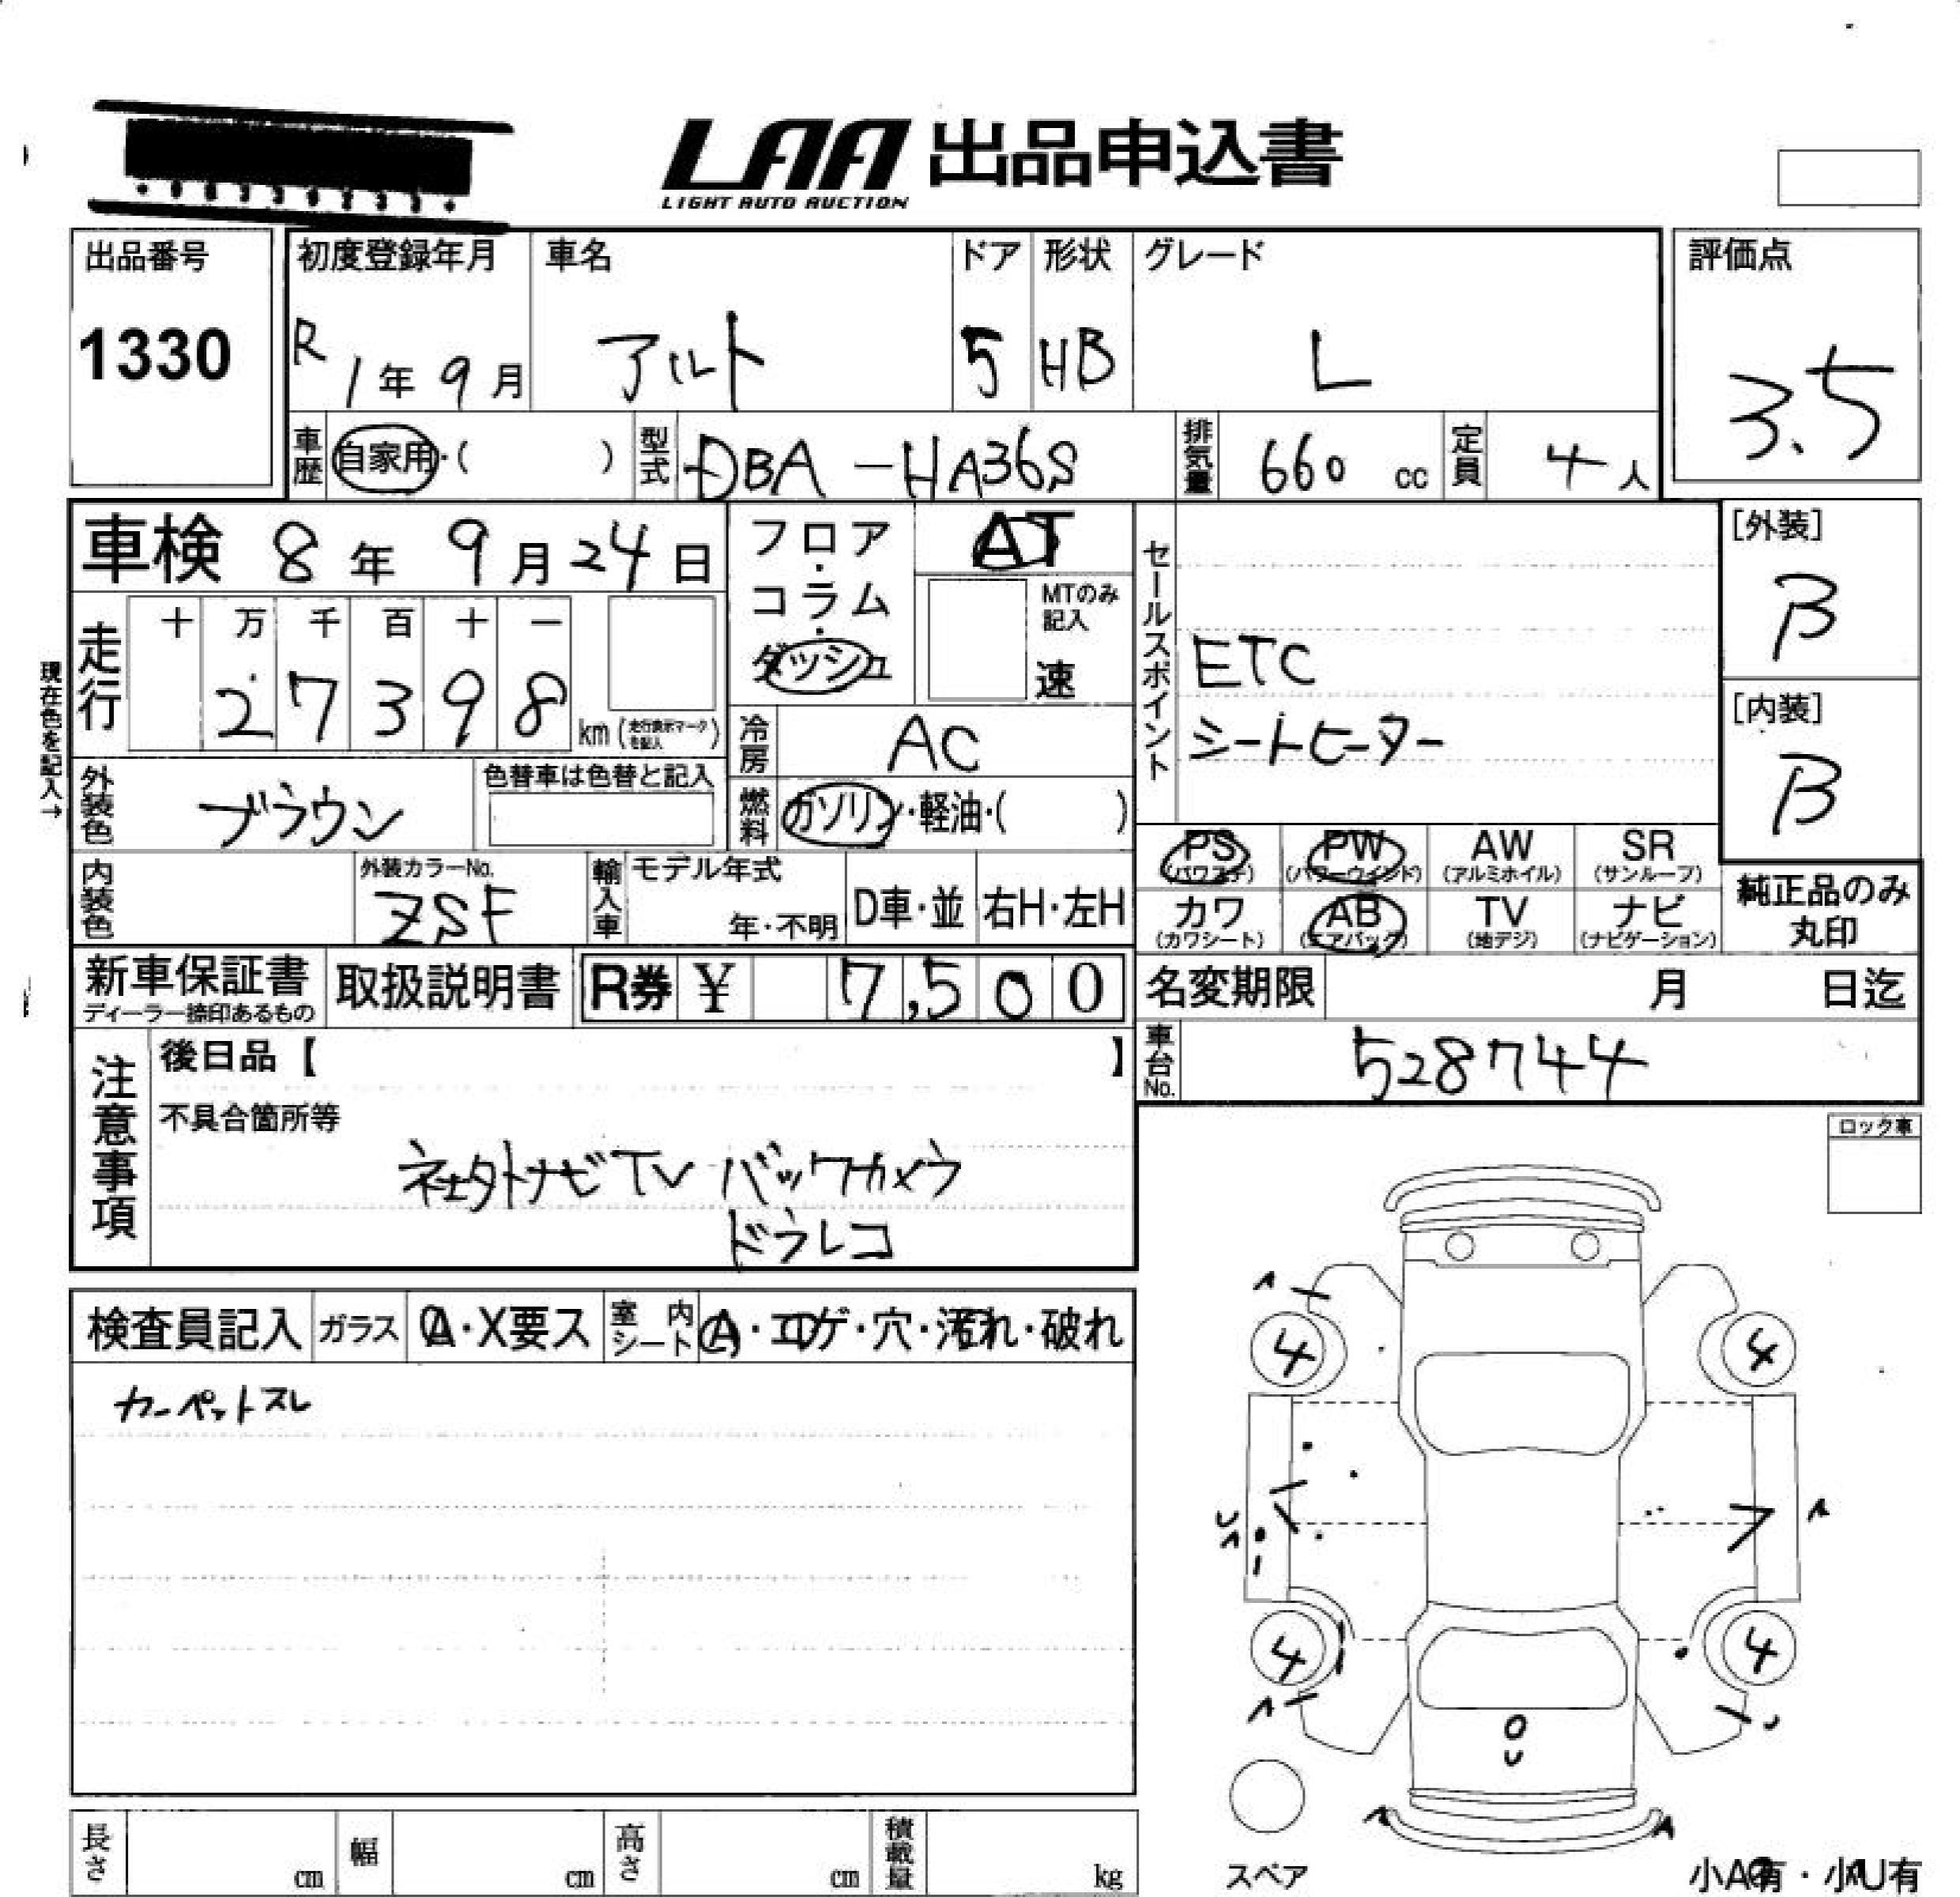 LAA 出品申込書
LIGHT AUTO AUCTION
出品番号
1330
初度登録年月
R 1年 9月
車名
アルト
ドア
5
形状
HB
グレード
L
評価点
3.5
車歴 自家用・( )
型式 DBA-HA36S
排気量 660 cc
定員 4人
車検 8年 9月 24日
現在色を記入→
走行
十 万 千 百 十 一
2 7 3 9 8
km (走行表示マークを記入)
フロア・コラム・ダッシュ
AT
MTのみ記入
速
セールスポイント
ETC
シートヒーター
[外装]
B
[内装]
B
冷房 AC
外装色 ブラウン
色替車は色替と記入
燃料 ガソリン・軽油・( )
PS (パワステ)
PW (パワーウインド)
AW (アルミホイル)
SR (サンルーフ)
カワ (カワシート)
AB (エアバック)
TV (地デジ)
ナビ (ナビゲーション)
純正品のみ
丸印
内装色
外装カラーNo.
ZSF
輸入車
モデル年式
年・不明
D車・並
右H・左H
新車保証書
ディーラー捺印あるもの
取扱説明書
R券 ¥ 7,500
名変期限 月 日迄
車台No. 528744
注意事項
後日品【 】
不具合箇所等
社外ナビTV バックカメラ
ドラレコ
ロック車
検査員記入
ガラス A・X要ス
室内シート A・コゲ・穴・汚れ・破れ
カーペットスレ
4
4
4
4
スペア
長さ cm
幅 cm
高さ cm
積載量 kg
小A有・小U有